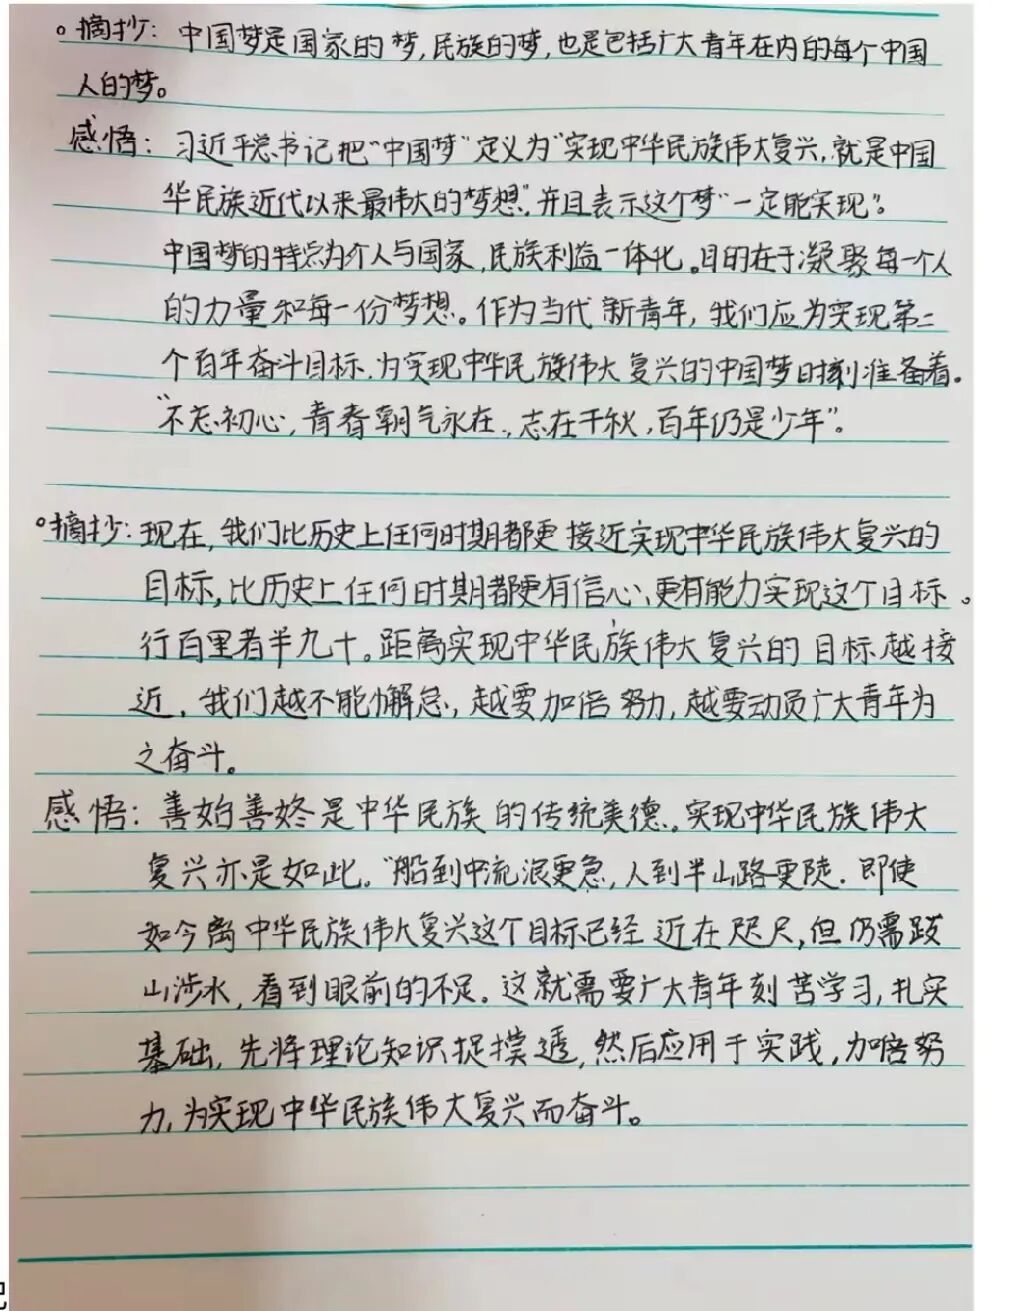 。摘抄：中国梦是国家的梦，民族的梦，也是包括广大青年在内的每个中国
人的梦。
感悟：习近平总书记把“中国梦”定义为“实现中华民族伟大复兴，就是中国
华民族近代以来最伟大的梦想”，并且表示这个梦“一定能实现”。
中国梦的特点为个人与国家，民族利益一体化。目的在于凝聚每一个人
的力量和每一份梦想。作为当代新青年，我们应为实现第二
个百年奋斗目标，为实现中华民族伟大复兴的中国梦时刻准备着。
“不忘初心，青春朝气永在，志在千秋，百年仍是少年”。
。摘抄：现在，我们比历史上任何时期都更接近实现中华民族伟大复兴的
目标，比历史上任何时期都更有信心、更有能力实现这个目标。
行百里者半九十。距离实现中华民族伟大复兴的目标越接
近，我们越不能懈怠，越要加倍努力，越要动员广大青年为
之奋斗。
感悟：善始善终是中华民族的传统美德。实现中华民族伟大
复兴亦是如此。“船到中流浪更急，人到半山路更陡．即使
如今离中华民族伟大复兴这个目标已经近在咫尺，但仍需跋
山涉水，看到眼前的不足。这就需要广大青年刻苦学习，扎实
基础，先将理论知识捉摸透，然后应用于实践，加倍努
力，为实现中华民族伟大复兴而奋斗。